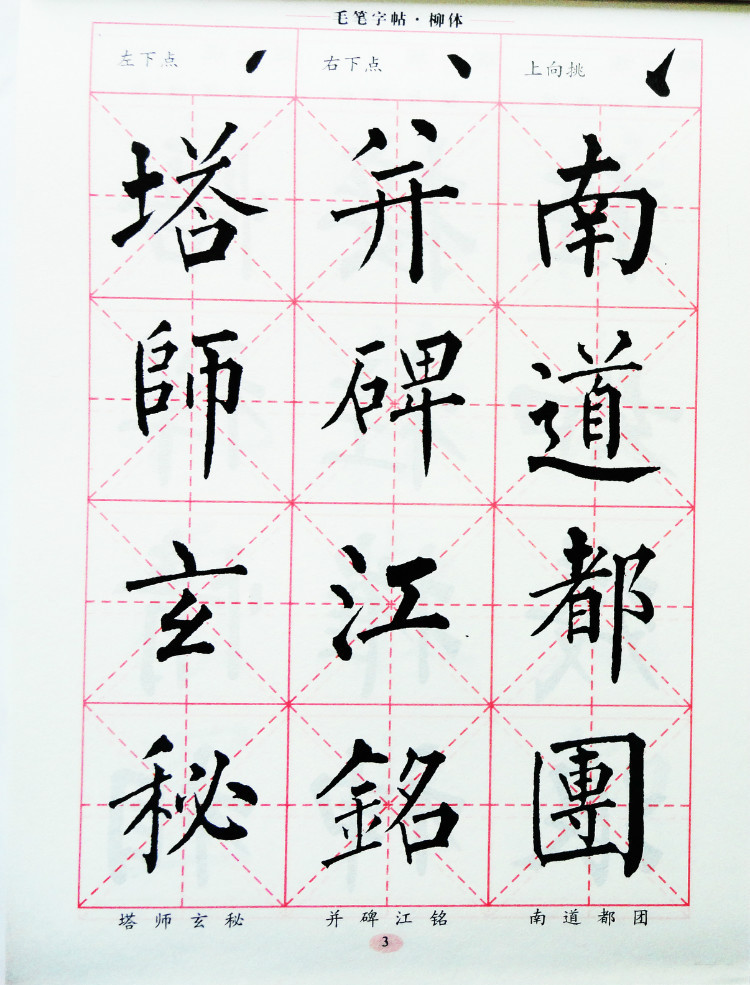 毛笔字帖·柳体
左下点 右下点 上向挑
塔 并 南
師 碑 道
玄 江 都
秘 銘 團
塔师玄秘 并碑江铭 南道都团
3